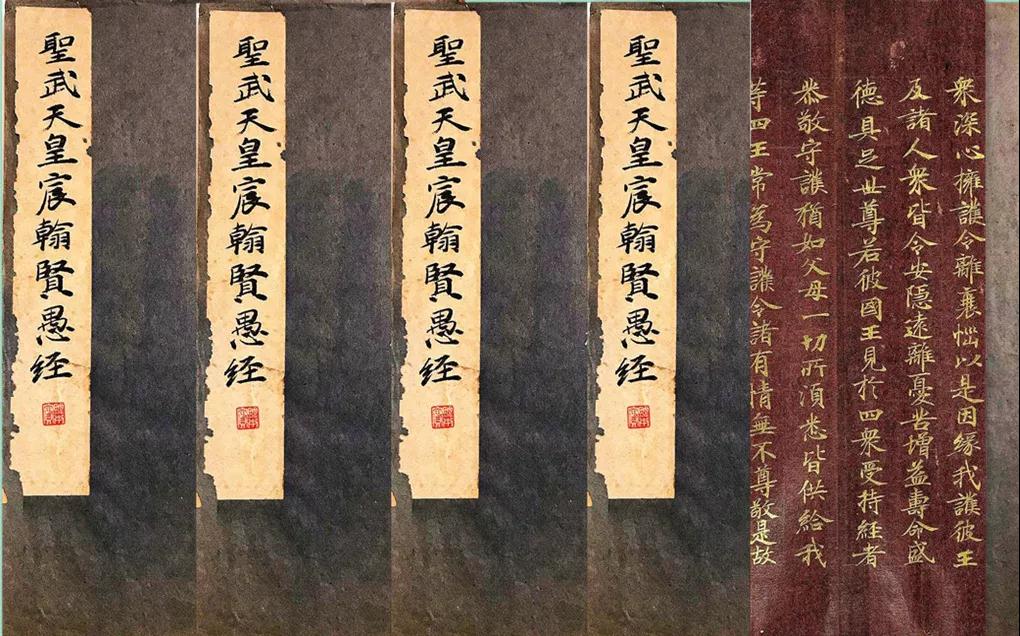 衆深心擁護令離衰惱以是因縁我護彼王
及諸人衆皆令安隱遠離憂苦增益壽命威
德具足世尊若彼國王見於四衆受持經者
恭敬守護猶如父母一切所須悉皆供給我
等四王常為守護令諸有情無不尊敬是故
聖武天皇宸翰賢愚経
聖武天皇宸翰賢愚経
聖武天皇宸翰賢愚経
聖武天皇宸翰賢愚経